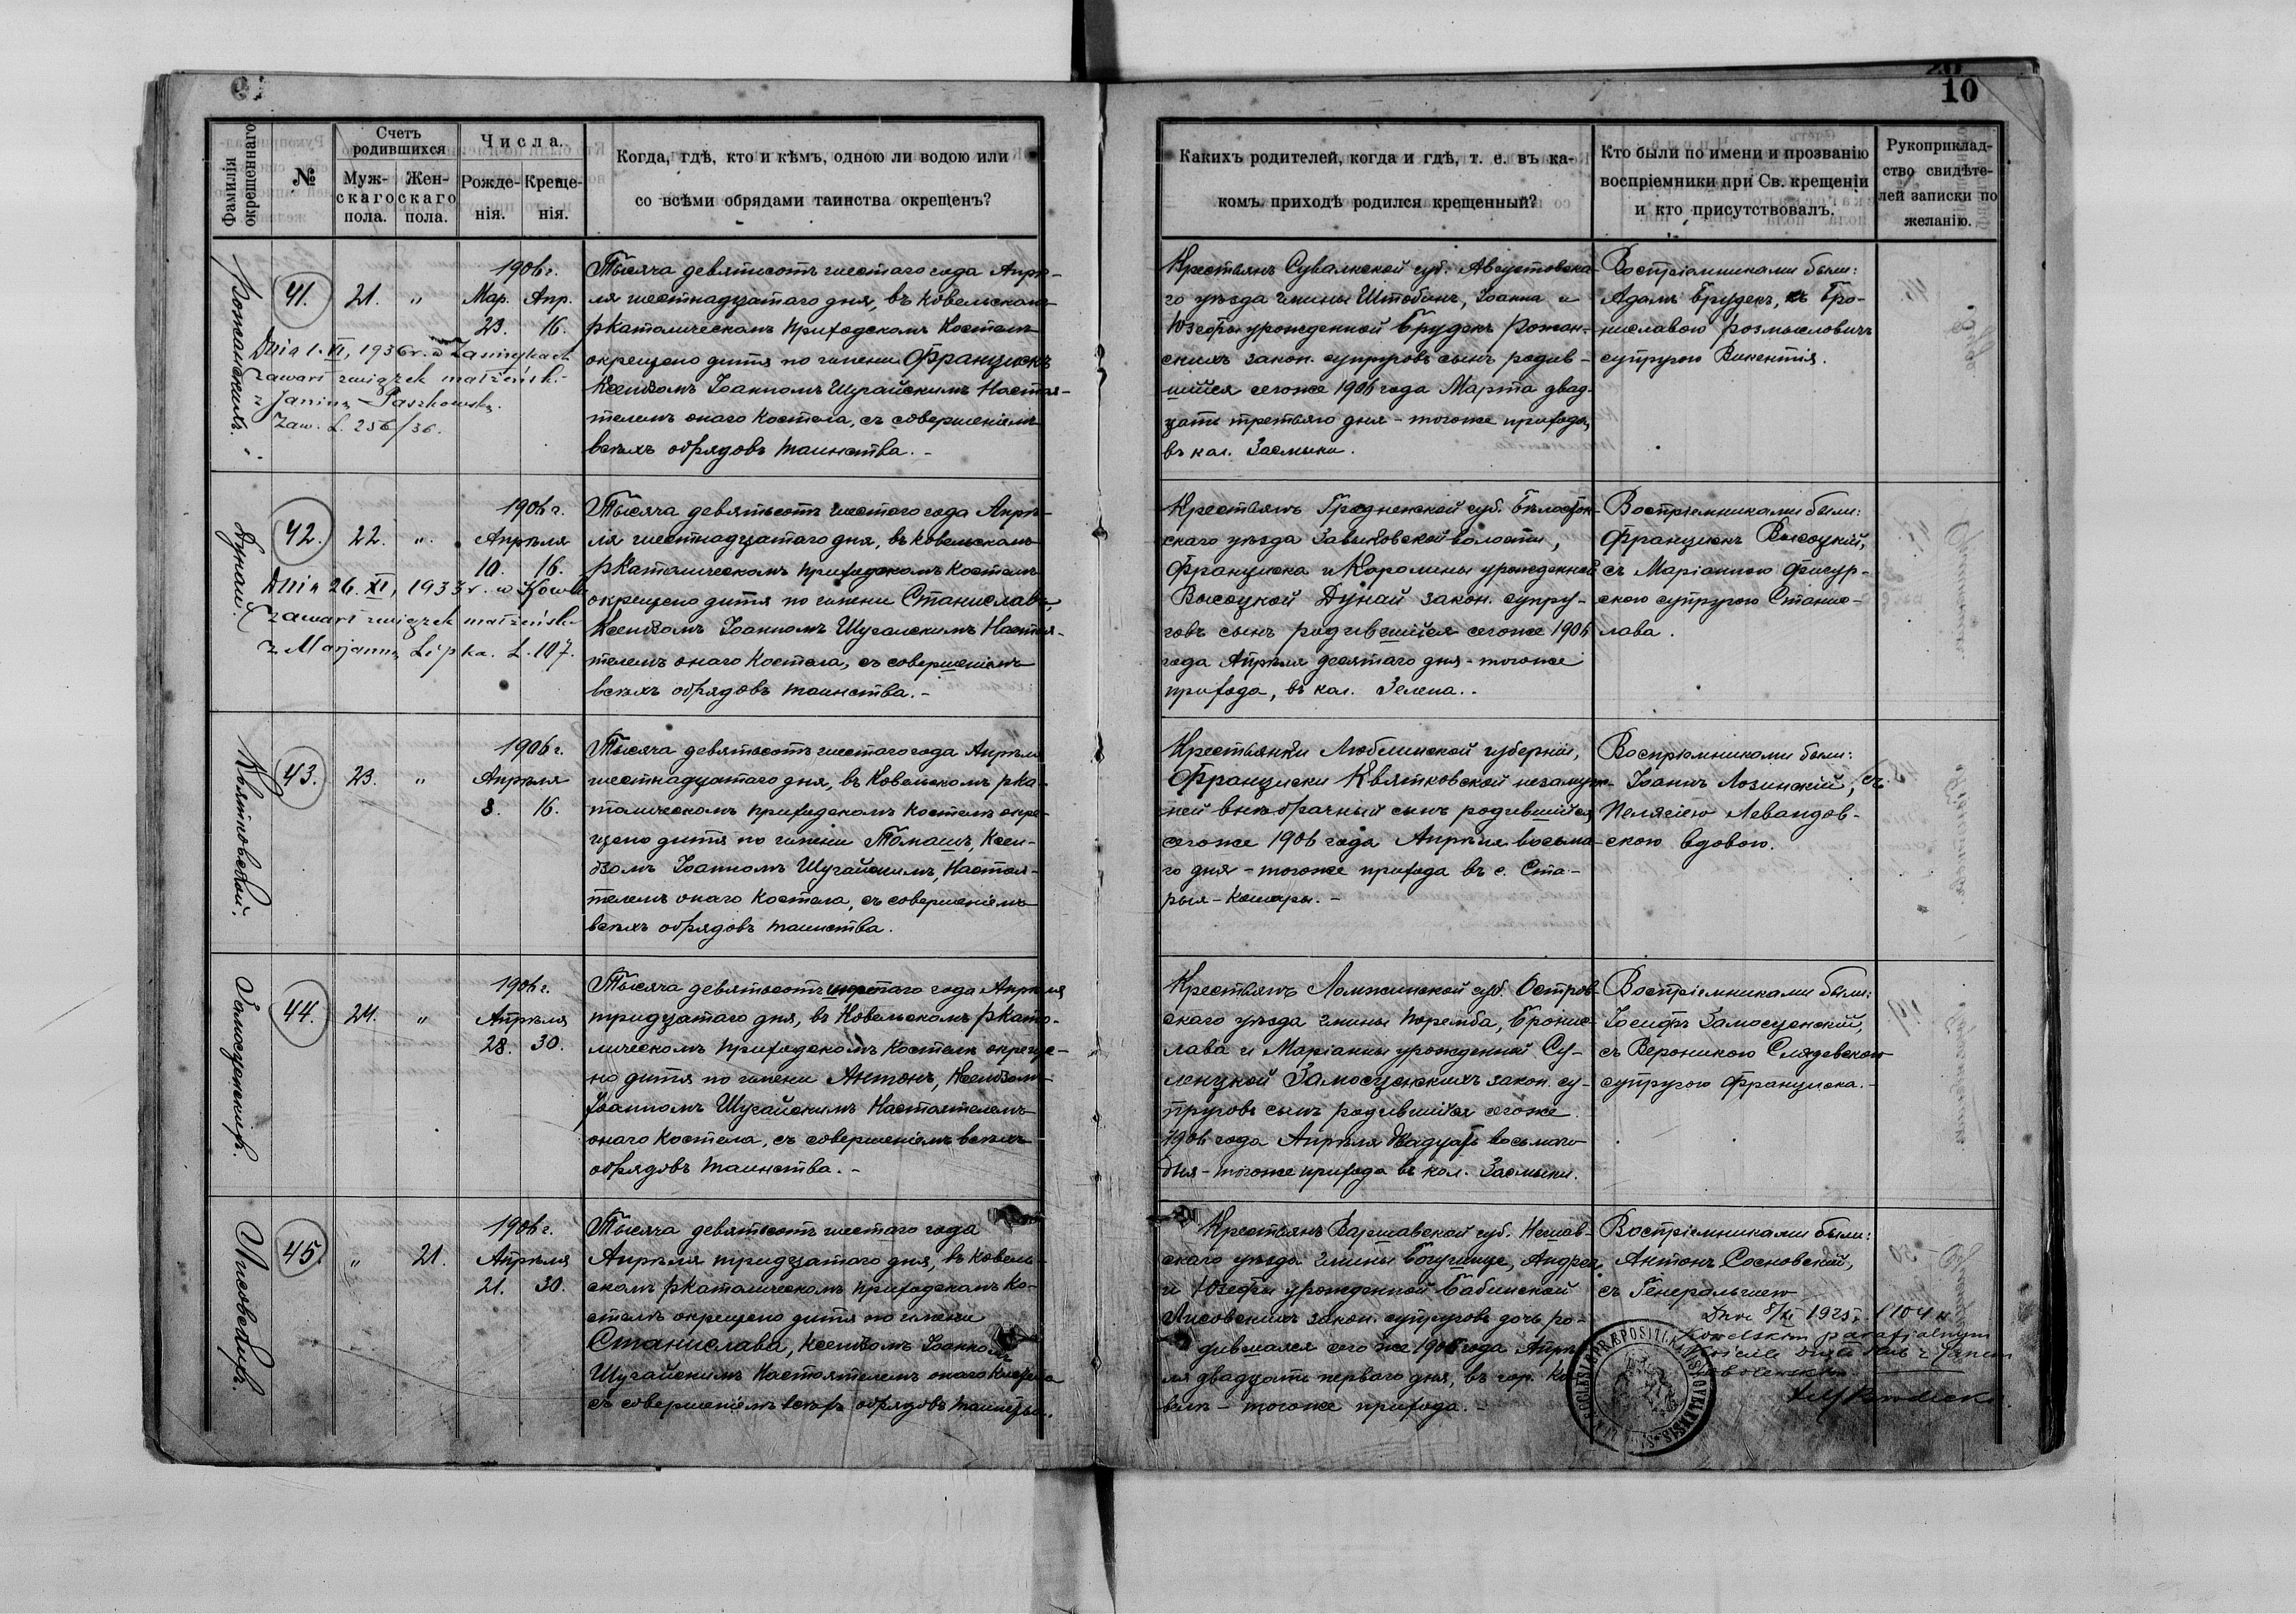 10
Фамилія окрещеннаго.
№
Счетъ родившихся
Мужскаго пола.
Женскаго пола.
Числа.
Рожденія.
Крещенія.
Когда, гдѣ, кто и кѣмъ, одною ли водою или
со всѣми обрядами таинства окрещенъ?
Какихъ родителей, когда и гдѣ, т. е. въ ка-
комъ приходѣ родился крещенный?
Кто были по имени и прозванію
воспріемники при Св. крещеніи
и кто присутствовалъ.
Рукоприклад-
ство свидѣте-
лей записки по
желанію.
41.
21.
"
1906 г.
Мар. Апр.
23. 16.
Dnia 1. XI, 1936 r. w
zawarł związek małżeńsk.
z Janiną Paszkowską.
Zaw. L. 256/36.
Тысяча девятисотъ шестаго года Апрѣ-
ля шестнадцатаго дня, въ Ковельскомъ
рКатолическомъ Приходскомъ Костелѣ
окрещено дитя по имени Францискъ
Ксендзомъ Іоанномъ Шугайскимъ Настоя-
телемъ онаго Костела, съ совершеніемъ
всѣхъ обрядовъ таинства. -
Крестьянъ Сувалкской губ. Августовска-
го уѣзда гмины Штабинъ, Іоанна и
Юзефы урожденной Брудекъ
скихъ закон. супруговъ сынъ родив-
шійся сегоже 1906 года Марта двад-
цать третьяго дня - тогоже прихода,
въ кол. Засмыки.
Воспріемниками были:
Адамъ Брудекъ, съ Бро-
ниславою Розмысловичъ
супругою Викентія.
Дунай.
42.
22.
"
1906 г.
Апрѣля
10. 16.
Dnia 26. XI, 1933 r. w Kowlu
zawarł związek małżeńsk.
z Marjanną Lipka. L. 107.
Тысяча девятьсотъ шестого года Апрѣ-
ля шестнадцатаго дня, въ Ковельскомъ
рКатолическомъ Приходскомъ Костелѣ
окрещено дитя по имени Станиславъ
Ксендзомъ Іоанномъ Шугайскимъ Настоя-
телемъ онаго Костела, съ совершеніемъ
всѣхъ обрядовъ таинства. -
Крестьянъ Гродненской губ. Бѣлосток-
скаго уѣзда Завыковской волости,
Франциска и Каролины урожденной
Высоцкой Дунай закон. супру-
говъ сынъ родившійся сегоже 1906
года Апрѣля десятаго дня - тогоже
прихода, въ кол. Зелена. .
Воспріемниками были:
Францискъ Высоцкій,
съ Маріанною Фигур-
скою супругою Станис-
лава.
Квятковской.
43.
23.
"
1906 г.
Апрѣля
8. 16.
Тысяча девятьсотъ шестаго года Апрѣля
шестнадцатаго дня, въ Ковельскомъ рКа-
толическомъ Приходскомъ Костелѣ окре-
щено дитя по имени Томашъ, Ксен-
дзомъ Іоанномъ Шугайскимъ, Настоя-
телемъ онаго Костела, съ совершеніемъ
всѣхъ обрядовъ таинства.
Крестьянки Люблинской губерніи,
Франциски Квятковской незамуж-
ней внѣбрачный сынъ родившійся
сегоже 1906 года Апрѣля восьма-
го дня - тогоже прихода въ с. Ста-
рыя-Кошары. -
Воспріемниками были:
Іоаннъ Лозинскій, съ
Пелягіею Левандов-
скою вдовою.
Замосценскихъ.
44.
24.
"
1906 г.
Апрѣля
28. 30.
Тысяча девятьсотъ шестаго года Апрѣля
тридцатаго дня, въ Ковельскомъ рКато-
лическомъ Приходскомъ Костелѣ окреще-
но дитя по имени Антонъ, Ксендзомъ
Іоанномъ Шугайскимъ Настоятелемъ
онаго Костела, съ совершеніемъ всѣхъ
обрядовъ таинства. -
Крестьянъ Ломжинской губ. Остров-
скаго уѣзда гмины Поремба, Бронис-
лава и Маріанны урожденной Су-
ленцкой Замосценскихъ закон. су-
пруговъ сынъ родившійся сегоже
1906 года Апрѣля двадцать восьмаго
дня - тогоже прихода въ кол. Засмыки.
Воспріемниками были:
Іосифъ Замосценскій,
съ Вероникою
супругою Франциска. -
Лисовскихъ.
45.
"
21.
1906 г.
Апрѣля
21. 30.
Тысяча девятьсотъ шестаго года
Апрѣля тридцатаго дня, въ Ковель-
скомъ рКатолическомъ Приходскомъ Ко-
стелѣ окрещено дитя по имени
Станислава, Ксендзомъ Іоанномъ
Шугайскимъ Настоятелемъ онаго Костела
съ совершеніемъ всѣхъ обрядовъ таинства.
Крестьянъ Варшавской губ. Нешав-
скаго уѣзда гмины Андрея
и Юзефы урожденной Бабинской
Лисовскихъ закон. супруговъ дочь ро-
дившаяся сегоже 1906 года Апрѣ-
ля двадцать перваго дня, въ гор. Ко-
велѣ - тогоже прихода. -
Воспріемниками были:
Антонъ Сосновскій,
съ
1925 r.
Kowelskim parafjalnym